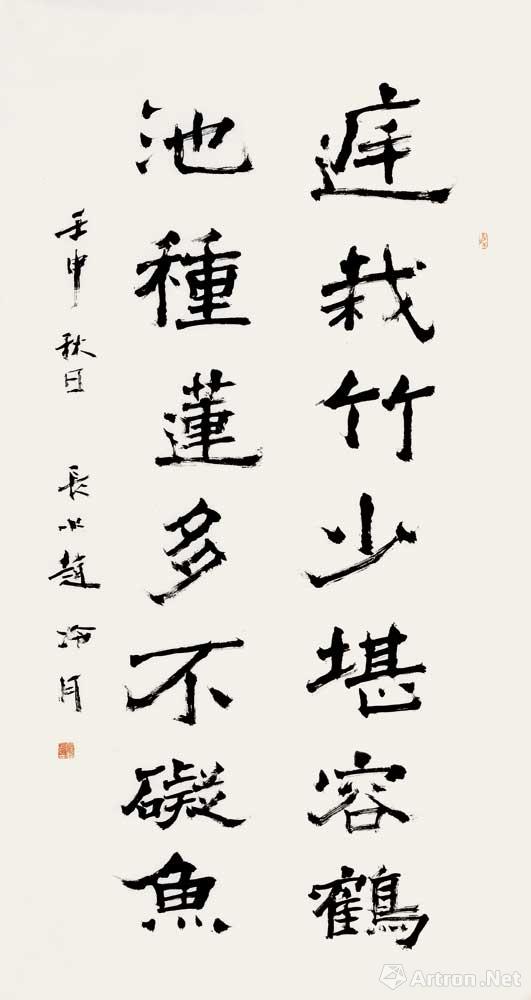 庭栽竹少堪容鶴
池種蓮多不礙魚
壬申 秋日 長水趙冷月
Artron.Net